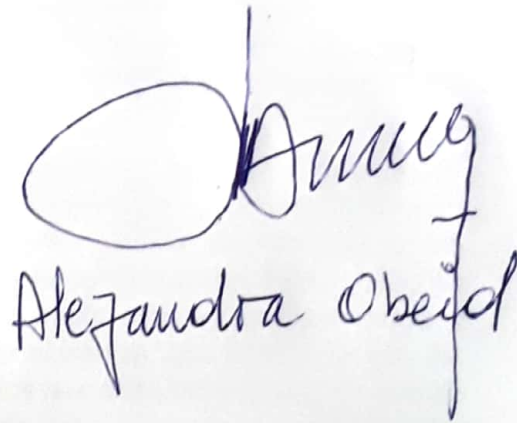 Alejandra Obeid